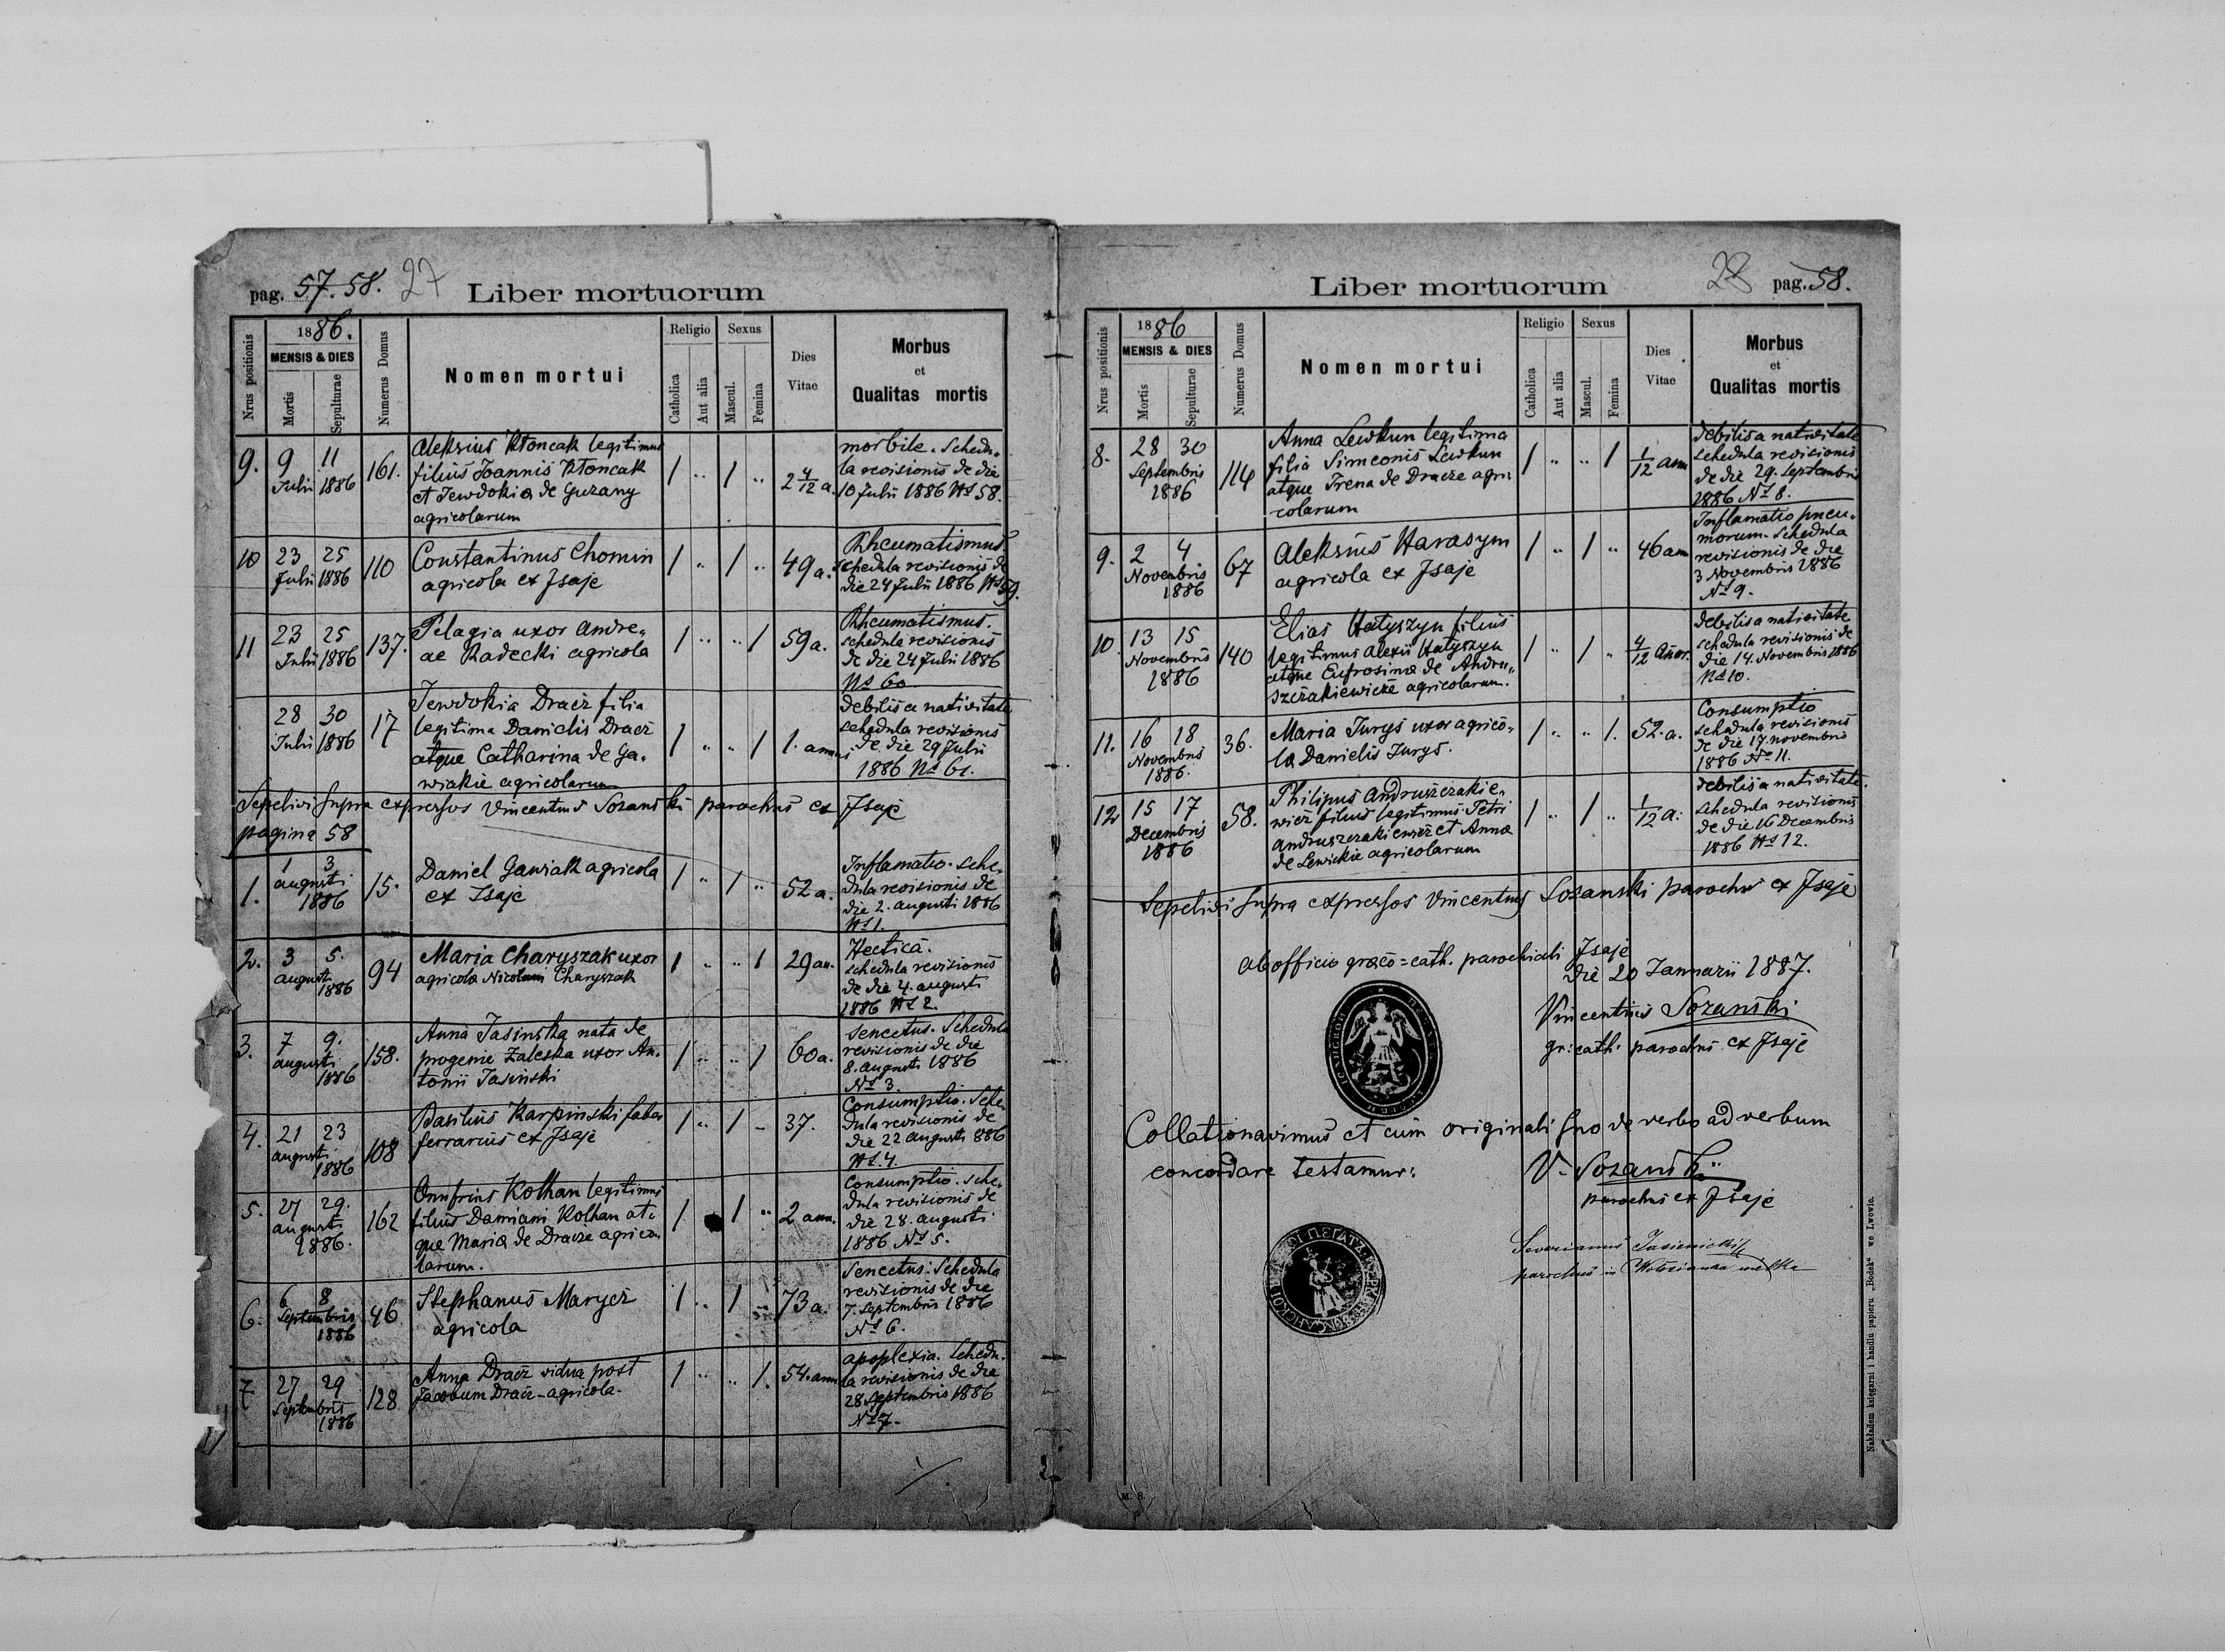 pag. 57. 58. 27
Liber mortuorum
Nrus positionis
1886.
MENSIS & DIES
Mortis
Sepulturae
Numerus Domus
Nomen mortui
Religio
Catholica
Aut alia
Sexus
Mascul.
Femina
Dies
Vitae
Morbus
et
Qualitas mortis
9. 9 11
Julii 1886
161.
Aleksius Ktoncak legitimus
filius Joannis Ktoncak
et Jewdokia de Guzany
agricolarum
1 " 1 " 2 4/12 a.
morbile. Schedu„
la revisionis de die
10 Julii 1886 No 58.
10 23 25
Julii 1886
110
Constantinus Chomin
agricola ex Jsaje
1 " 1 " 49 a.
Rheumatismus
schedula revisionis de
die 24 Julii 1886 No 59.
11 23 25
Julii 1886
137.
Pelagia uxor Andre„
ae Radecki agricola
1 " " 1 59 a.
Rheumatismus.
schedula revisionis
de die 24 Julii 1886
No 60
28 30
Julii 1886
17
Jewdokia Dracz filia
legitima Danielis Dracz
atque Catharina de Ga„
wiakie agricolarum
1 " " 1 1. annus
debilis a nativitate
schedula revisionis
de die 29 Julii
1886 No 61.
Sepelivi supra expressos Vincentius Sozanski parochus ex Jsaje
pagina 58
1. 1 3
augusti
1886
15.
Daniel Gawiak agricola
ex Isaje
1 " 1 " 52 a.
Inflamatio. sche„
dula revisionis de
die 2. augusti 1886
No 1.
2. 3 5.
augusti
1886
94
Maria Charyszak uxor
agricola Nicolaum Charyszak
1 " " 1 29 an.
Hectica.
schedula revisionis
de die 4. augusti
1886 No 2.
3. 7 9.
augusti
1886
158.
Anna Jasinska nata de
progenie Zaleska uxor An„
tonii Jasinski
1 " " 1 60 a.
Senectus. Schedula
revisionis de die
8. augusti 1886
No 3.
4. 21 23
augusti
1886
108
Basilius Karpinski faber
ferrarius ex Jsaje
1 " 1 " 37.
Consumptio. Sche„
dula revisionis de
die 22 augusti 886
No 4.
5. 27 29.
augusti
1886.
162
Onufrius Kolhan legitimus
filius Damiani Kolhan at„
que Maria de Dracze agrico„
larum.
1 1 " 2 ann.
Consumptio. Sche„
dula revisionis de
die 28. augusti
1886 No 5.
6. 6 8
Septembris
1886
46
Stephanus Marycz
agricola
1 " 1 " 73 a.
Senectus. Schedula
revisionis de die
7. Septembris 1886
No 6.
7 27 29
Septembris
1886
128
Anna Dracz vidua post
Jacobum Dracz - agricola.
1 " " 1. 54. ann
apoplexia. Schedu„
la revisionis de die
28 Septembris 1886
No 7.
Liber mortuorum
28 pag. 58.
Nrus positionis
1886
MENSIS & DIES
Mortis
Sepulturae
Numerus Domus
Nomen mortui
Religio
Catholica
Aut alia
Sexus
Mascul.
Femina
Dies
Vitae
Morbus
et
Qualitas mortis
8. 28 30
Septembris
1886
114
Anna Lewkun legitima
filia Simeonis Lewkun
atque Irena de Dracze agri„
colarum
1 " " 1 1/12 ann
debilis a nativitate
schedula revisionis
de die 29. Septembris
1886 No 8.
9. 2 4
Novembris
1886
67
Aleksius Harasym
agricola ex Jsaje
1 " 1 " 46 ann
Inflamatio pneu„
morum. Schedula
revisionis de die
3 Novembris 1886
No 9.
10. 13 15
Novembris
1886
140
Elias Hatyszyn filius
legitimus Alexii Hatyszyn
atque Eufrosina de Andru„
szczakiewicze agricolarum.
1 " 1 " 4/12 anor.
debilis a nativitate
schedula revisionis de
die 14. Novembris 1886
No 10.
11. 16 18
Novembris
1886.
36.
Maria Jurys uxor agrico„
la Danielis Jurys.
1 " " 1. 52. a.
Consumptio
schedula revisionis
de die 17. novembris
1886 No 11.
12 15 17
Decembris
1886
58.
Philipus Andruszczakie„
wicz filius legitimus Petri
Andruszczakiewicz et Anna
de Lewickie agricolarum
1 " 1 " 1/12 a.
debilis a nativitate.
schedula revisionis
de die 16 Decembris
1886 No 12.
Sepelivi supra expressos Vincentius Sozanski parochus ex Jsaje
Ab officio graeco=cath. parochiali Jsaje
die 20 Januarii 1887.
Vincentius Sozanski
gr: cath: parochus ex Jsaje
Collationavimus et cum originali suo de verbo ad verbum
concordare testamur:
V. Sozanski
parochus ex Jsaje
Severianus Jasienicki
parochus in
Nakładem księgarni i handlu papieru „Bodek“ we Lwowie.
M. 8.